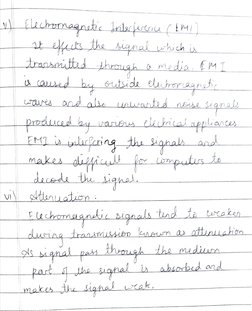 v) Electromagnetic Interference (EMI)
It effects the signal which is
transmitted through a media. EMI
is caused by outside electromagnetic
waves and also unwanted noise signals
produced by various electrical appliances
EMI is interfering the signals and
makes difficult for computers to
decode the signal.
vi) Attenuation.
Electromagnetic signals tend to weaken
during transmission known as attenuation
As signal pass through the medium
part of the signal is absorbed and
makes the signal weak.